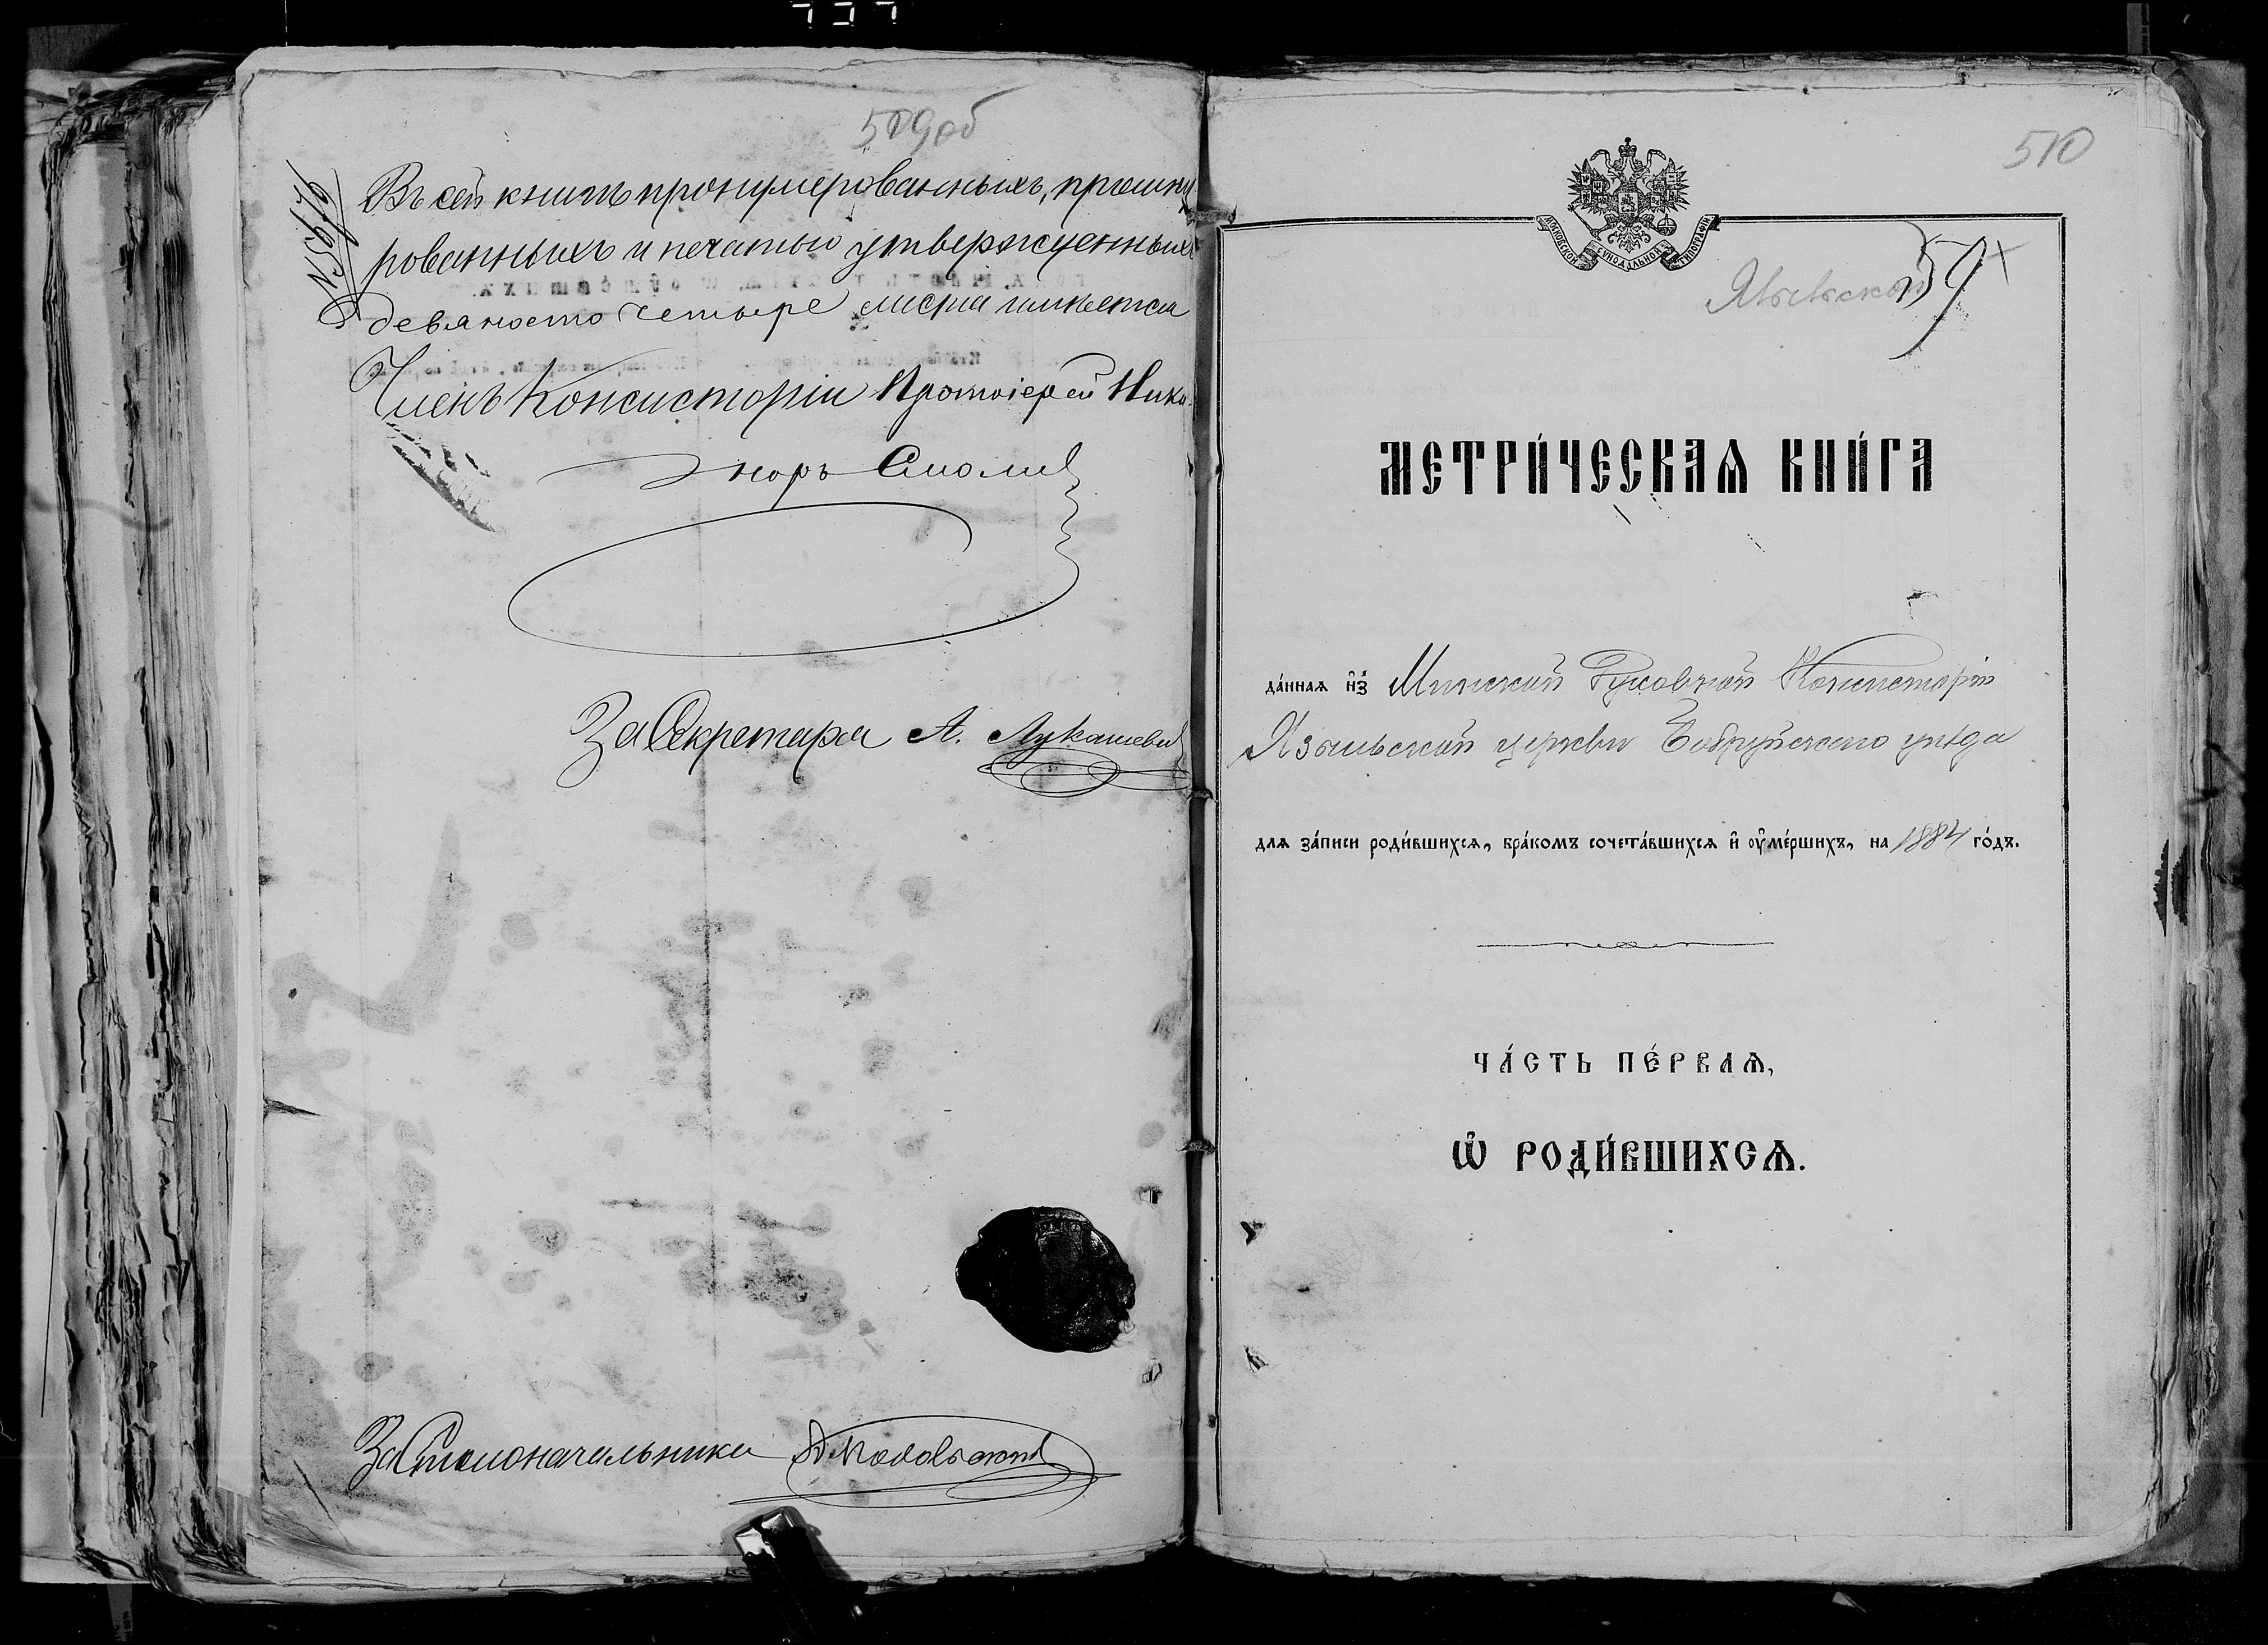 509 об
№ 5676
Въ сей книгѣ пронумерованныхъ, прошну
рованныхъ и печатью утвержденныхъ
девяносто четыре листа имѣется
Членъ Консисторіи Протоіерей Ника
норъ Смолич
За Секретаря А. Лукашевич
За Столоначальника
510
МОСКОВСКОЙ СѴНОДАЛЬНОЙ ТИПОГРАФІИ
59
МЕТРИ́ЧЕСКАѦ КНИ́ГА
да́ннаѧ и҆з̾ Минской Духовной Консисторіи
Языльской церкви Бобруйскаго уѣзда
длѧ за́писи роди́вшихсѧ, бра́комъ сочета́вшихсѧ и҆ ᲂу҆ме́ршихъ, на 1884 го́дъ.
ЧА́СТЬ ПЕ́РВАѦ,
Ѽ РОДИ́ВШИХСѦ.